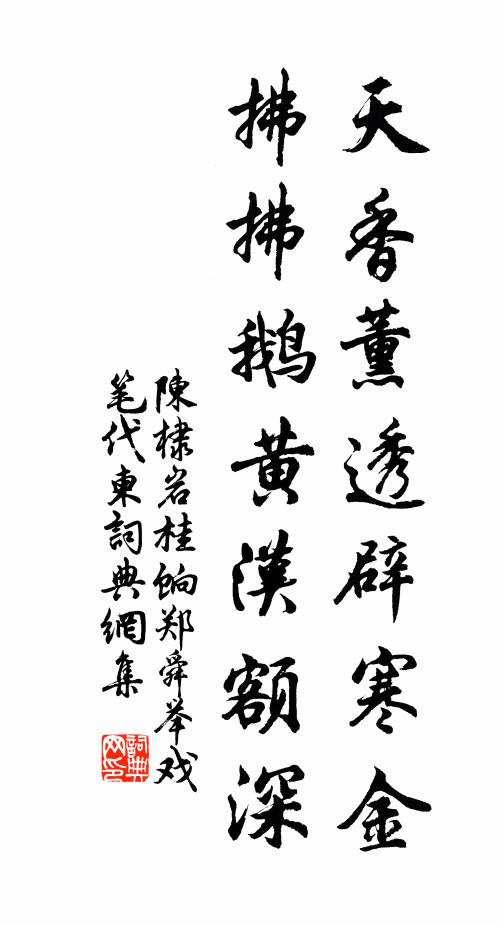 天香薰透辟寒金
拂拂鹅黄汉额深
陳棣岩桂餉郑舜举戏
笔代東詞典網集
詞典网印